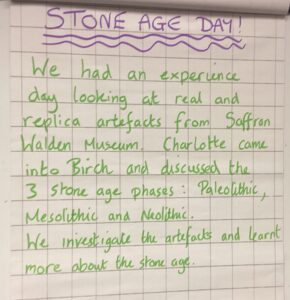 STONE AGE DAY!
We had an experience
day looking at real and
replica artefacts from Saffron
Walden Museum. Charlotte came
into Birch and discussed the
3 stone age phases: Paleolithic,
Mesolithic and Neolithic.
We investigate the artefacts and learnt
more about the stone age.